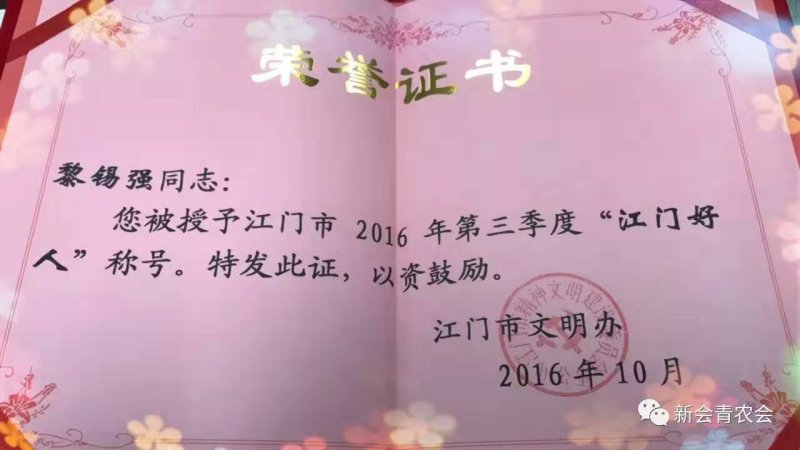 荣誉证书
黎锡强同志：
您被授予江门市 2016 年第三季度“江门好
人”称号。特发此证，以资鼓励。
江门市文明办
2016 年 10 月
新会青农会